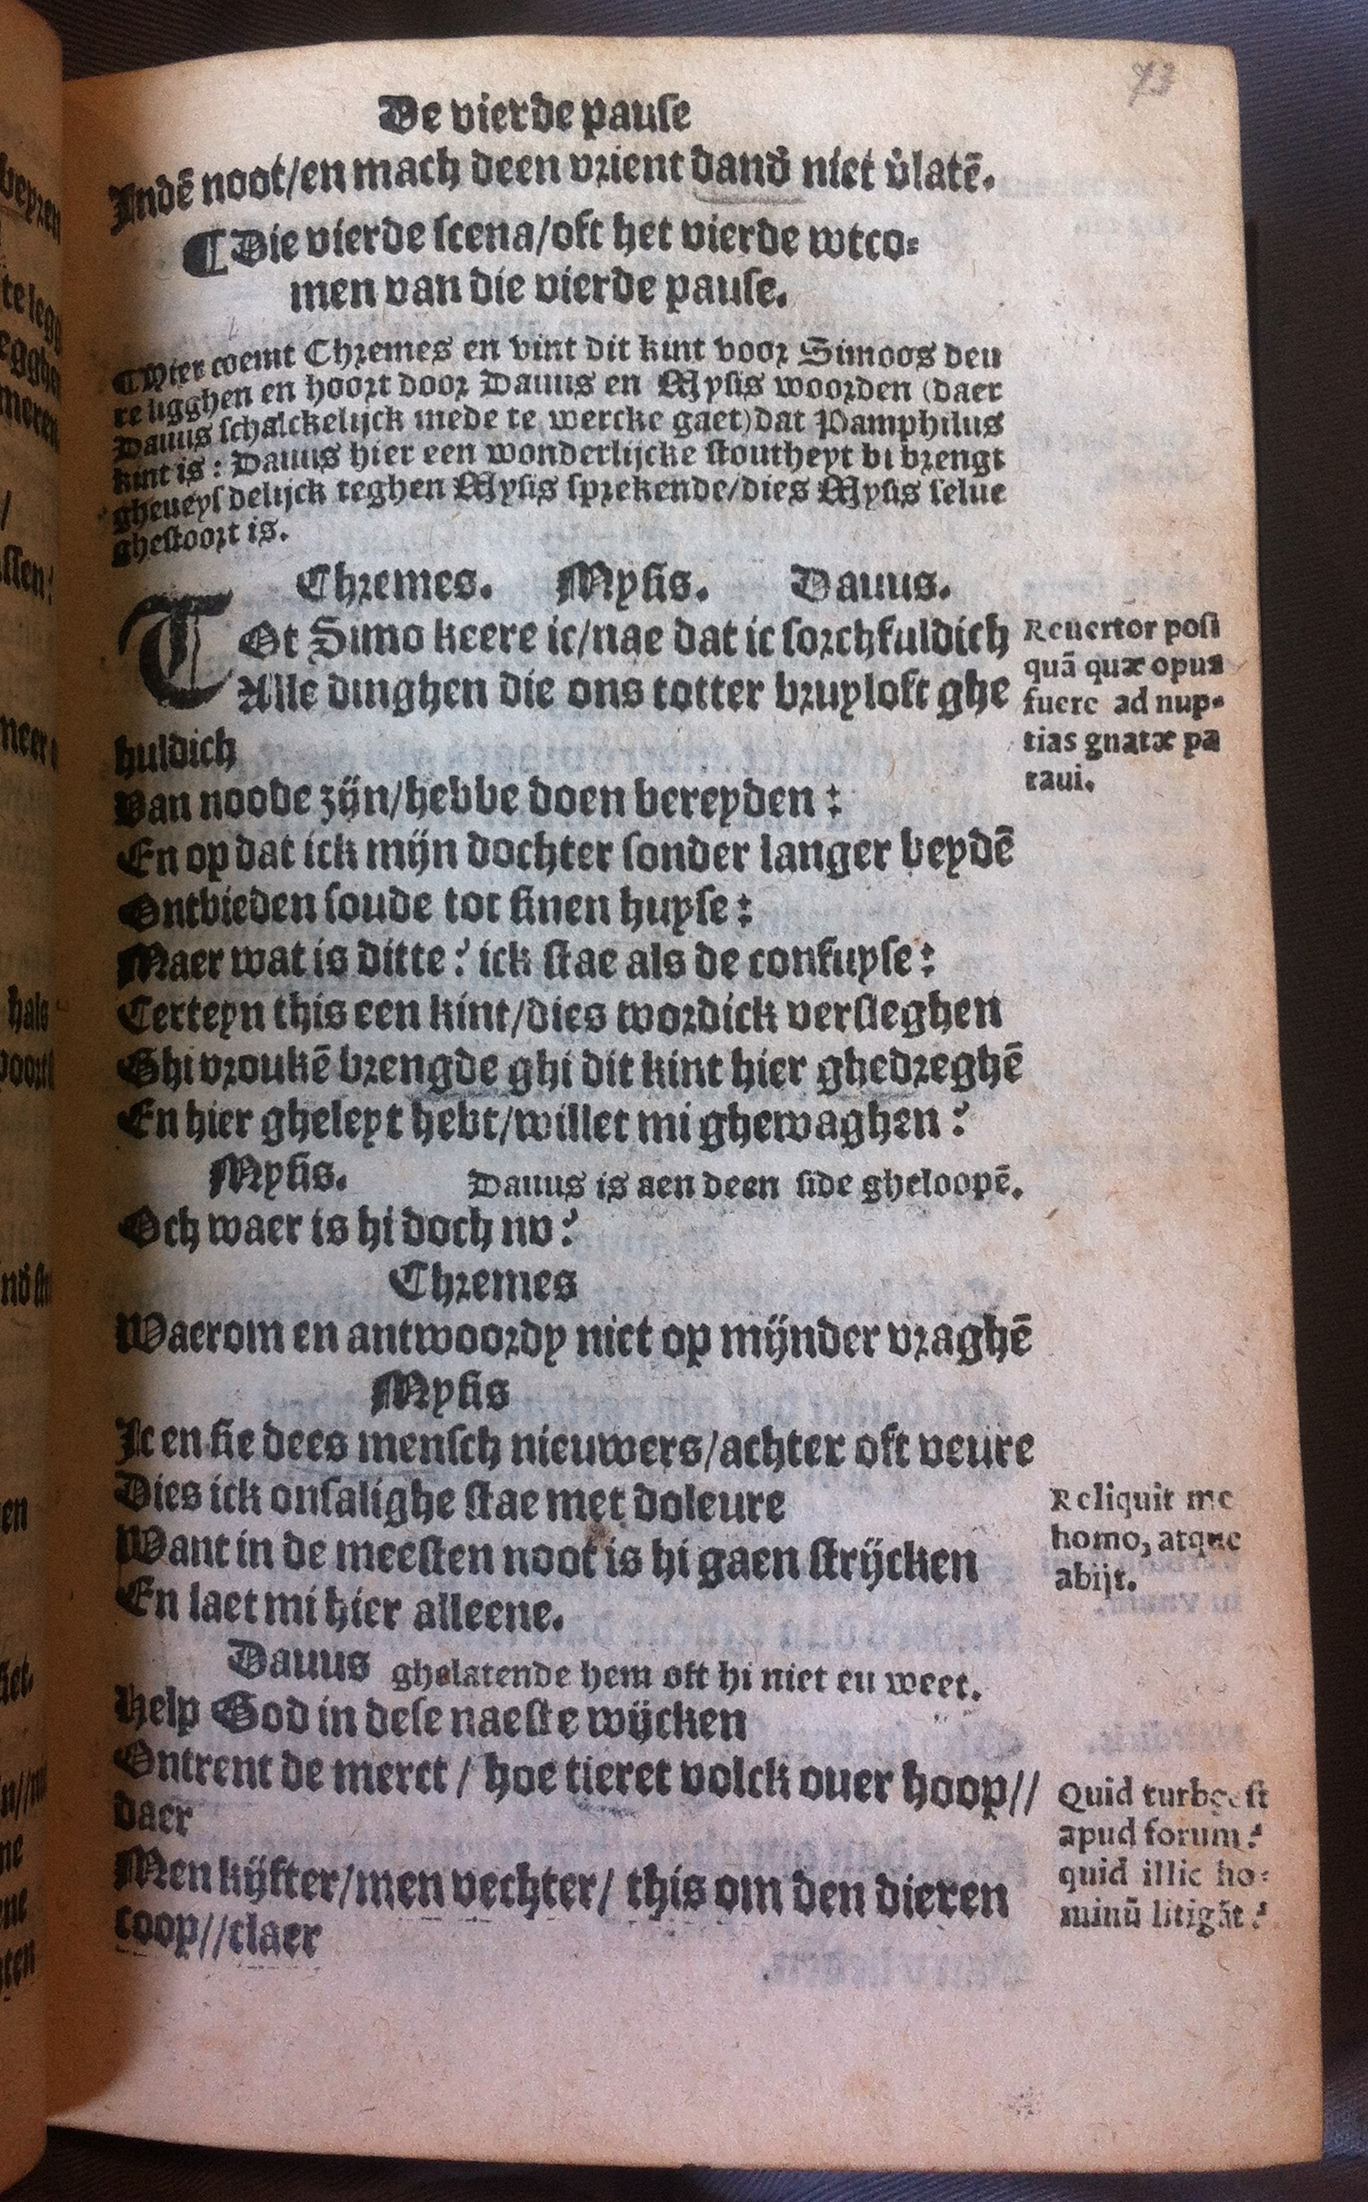 73
De vierde pause
Indē noot/en mach deen vrient dand' niet v'latē.
¶ Die vierde scena/oft het vierde wtco⸗
men van die vierde pause.
¶ Hier coemt Chremes en vint dit kint voor Simoos deu
re ligghen en hoort door Dauus en Mysis woorden (daer
Dauus schalckelijck mede te wercke gaet) dat Pamphilus
kint is: Dauus hier een wonderlijcke stoutheyt bi brengt
gheueysdelijck teghen Mysis sprekende/dies Mysis selue
ghestoort is.
Chremes. Mysis. Dauus.
TOt Simo keere ic/nae dat ic sorchfuldich
Alle dinghen die ons totter bruyloft ghe
huldich
Van noode zijn/hebbe doen bereyden:
En op dat ick mijn dochter sonder langer beydē
Ontbieden soude tot sinen huyse:
Maer wat is ditte? ick stae als de confuyse:
Certeyn this een kint/dies wordick versleghen
Ghi vroukē brengde ghi dit kint hier ghedreghē
En hier gheleyt hebt/willet mi ghewaghen?
Mysis. Dauus is aen deen side gheloopē.
Och waer is hi doch nv?
Chremes
Waerom en antwoordy niet op mijnder vraghē
Mysis
Ic en sie dees mensch nieuwers/achter oft veure
Dies ick onsalighe stae met doleure
Want in de meesten noot is hi gaen strijcken
En laet mi hier alleene.
Dauus ghelatende hem oft hi niet en weet.
Help God in dese naeste wijcken
Ontrent de merct / hoe tieret volck ouer hoop//
daer
Men kijfter/men vechter/ this om den dieren
coop//claer
Reuertor post
quā quæ opus
fuere ad nup⸗
tias gnatæ pa
raui.
Reliquit me
homo, atque
abijt.
Quid turbæ est
apud forum?
quid illic ho⸗
minū litigāt?